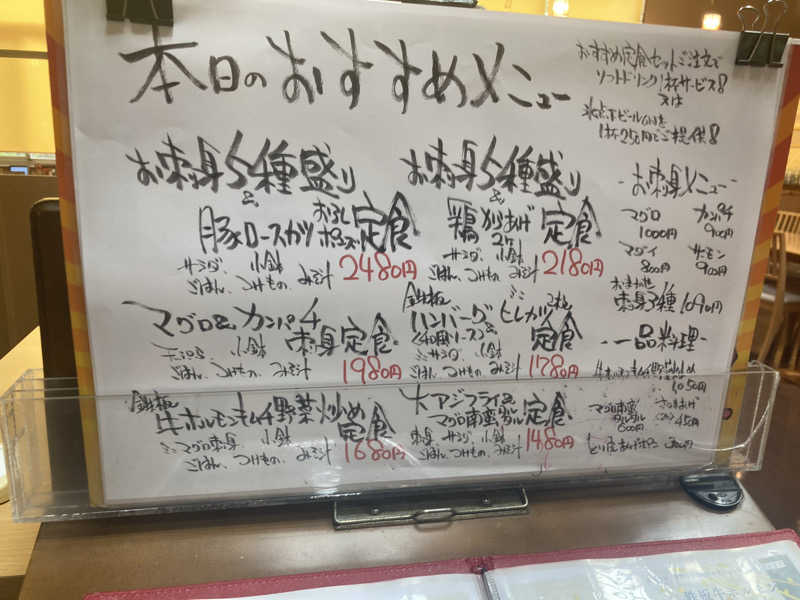 本日のおすすめメニュー
おすすめ定食セットご注文で
ソフトドリンク1杯サービス!!
又は
1杯250円でご提供!!
お刺身5種盛り
&
豚ロースカツ おろしポン酢 定食
サラダ、小鉢
ごはん、つけもの、みそ汁
2480円
お刺身5種盛り
&
鶏からあげ 2ケ 定食
サラダ、小鉢
ごはん、つけもの、みそ汁
2180円
-お刺身メニュー-
マグロ
1000円
カンパチ
900円
マダイ
800円
サーモン
900円
刺身3種 1090円
マグロ&カンパチ
刺身定食
小鉢
ごはん、つけもの、みそ汁
1980円
鉄板
ハンバーグ
和風ソース&
ミニヒレカツ
定食
サラダ、小鉢
ごはん、つけもの、みそ汁
1780円
-一品料理-
1050円
マグロ南蛮タルタル
600円
450円
鉄板
牛ホルモンキムチ野菜炒め
定食
ミニマグロ刺身 小鉢
ごはん、つけもの、みそ汁
1680円
大アジフライ&
マグロ南蛮タルタル 定食
サラダ、小鉢
ごはん、つけもの、みそ汁
1480円